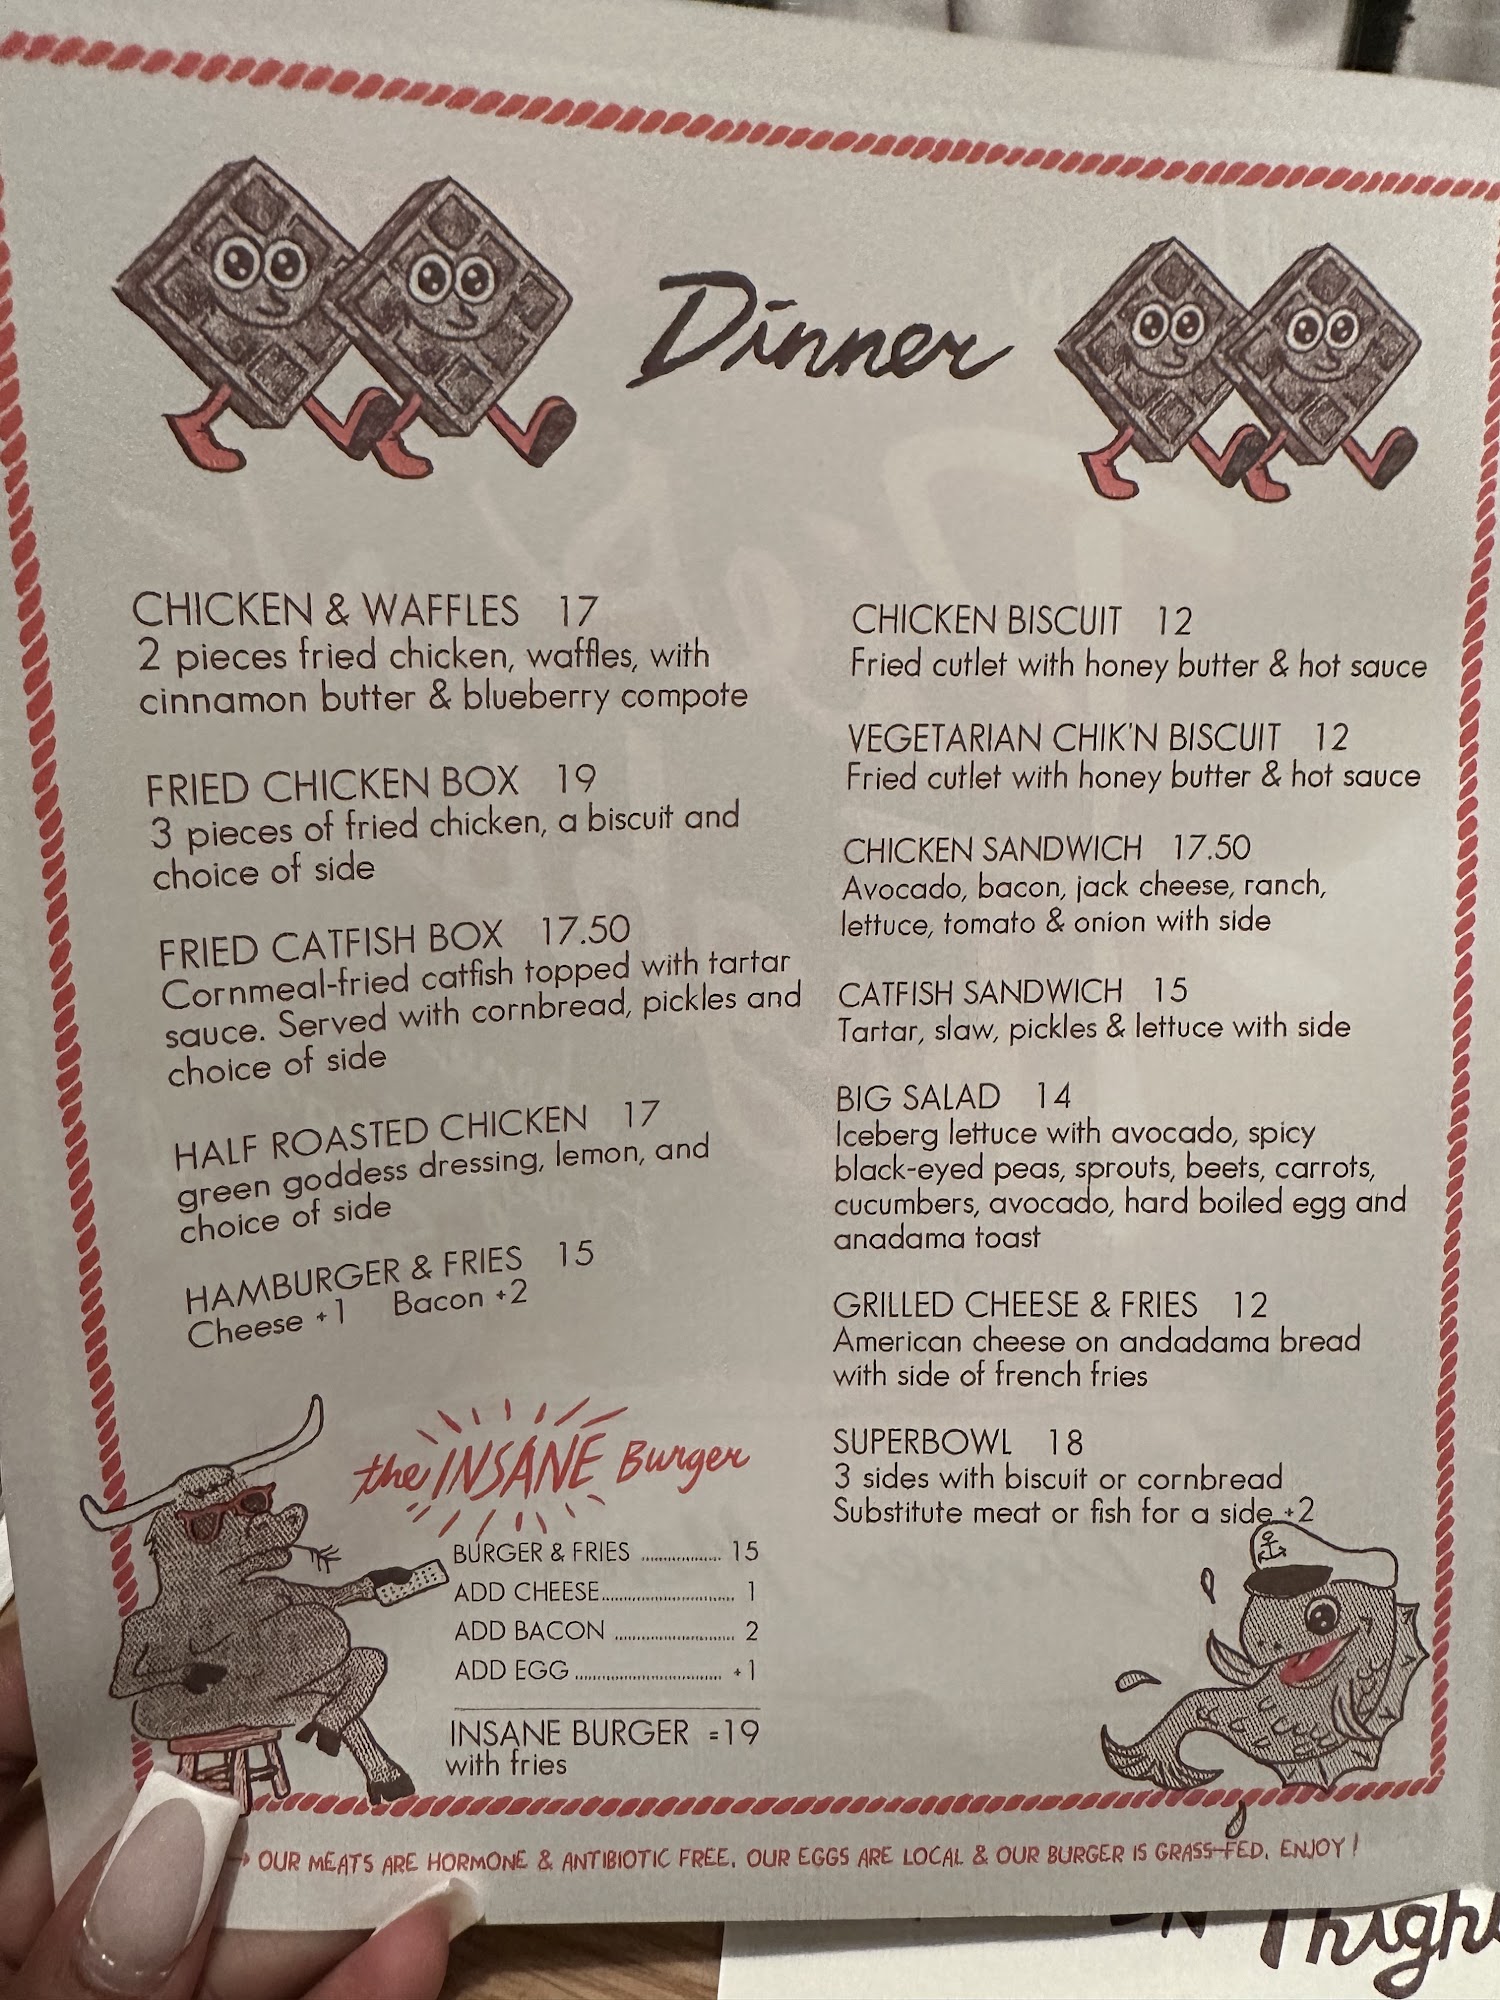 Dinner
CHICKEN & WAFFLES 17
2 pieces fried chicken, waffles, with
cinnamon butter & blueberry compote
FRIED CHICKEN BOX 19
3 pieces of fried chicken, a biscuit and
choice of side
FRIED CATFISH BOX 17.50
Cornmeal-fried catfish topped with tartar
sauce. Served with cornbread, pickles and
choice of side
HALF ROASTED CHICKEN 17
green goddess dressing, lemon, and
choice of side
HAMBURGER & FRIES 15
Cheese +1 Bacon +2
the INSANE Burger
BURGER & FRIES ................ 15
ADD CHEESE........................... 1
ADD BACON ........................ 2
ADD EGG .............................. +1
INSANE BURGER =19
with fries
CHICKEN BISCUIT 12
Fried cutlet with honey butter & hot sauce
VEGETARIAN CHIK'N BISCUIT 12
Fried cutlet with honey butter & hot sauce
CHICKEN SANDWICH 17.50
Avocado, bacon, jack cheese, ranch,
lettuce, tomato & onion with side
CATFISH SANDWICH 15
Tartar, slaw, pickles & lettuce with side
BIG SALAD 14
Iceberg lettuce with avocado, spicy
black-eyed peas, sprouts, beets, carrots,
cucumbers, avocado, hard boiled egg and
anadama toast
GRILLED CHEESE & FRIES 12
American cheese on andadama bread
with side of french fries
SUPERBOWL 18
3 sides with biscuit or cornbread
Substitute meat or fish for a side +2
OUR MEATS ARE HORMONE & ANTIBIOTIC FREE. OUR EGGS ARE LOCAL & OUR BURGER IS GRASS-FED. ENJOY!